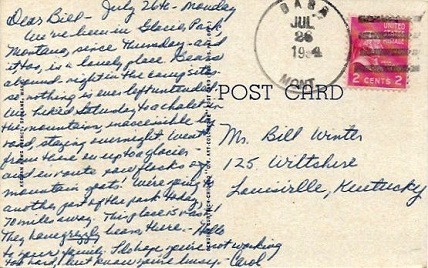 Dear Bill - July 26th - Monday
We've been in Glacier Park,
Montana, since Thursday - and
it, too, is a lovely place. Bears
abound - right in the camp sites -
so nothing is ever left untended.
We hiked Saturday to a chalet in
the mountains, inaccessible by
road, staying overnight. Went
from there on up to a glacier -
and en route saw flocks of
mountain goats. We're going to
another part of the park today,
70 miles away. This place is
They have grizzly bears there. - Hello
to your family. I do hope you're not working
too hard, but know you're busy - Carol
BABB
JUL
26
MONT.
UNITED
POSTAGE
2 CENTS 2
POST CARD
Mr. Bill Winter
125 Wiltshire
Louisville, Kentucky